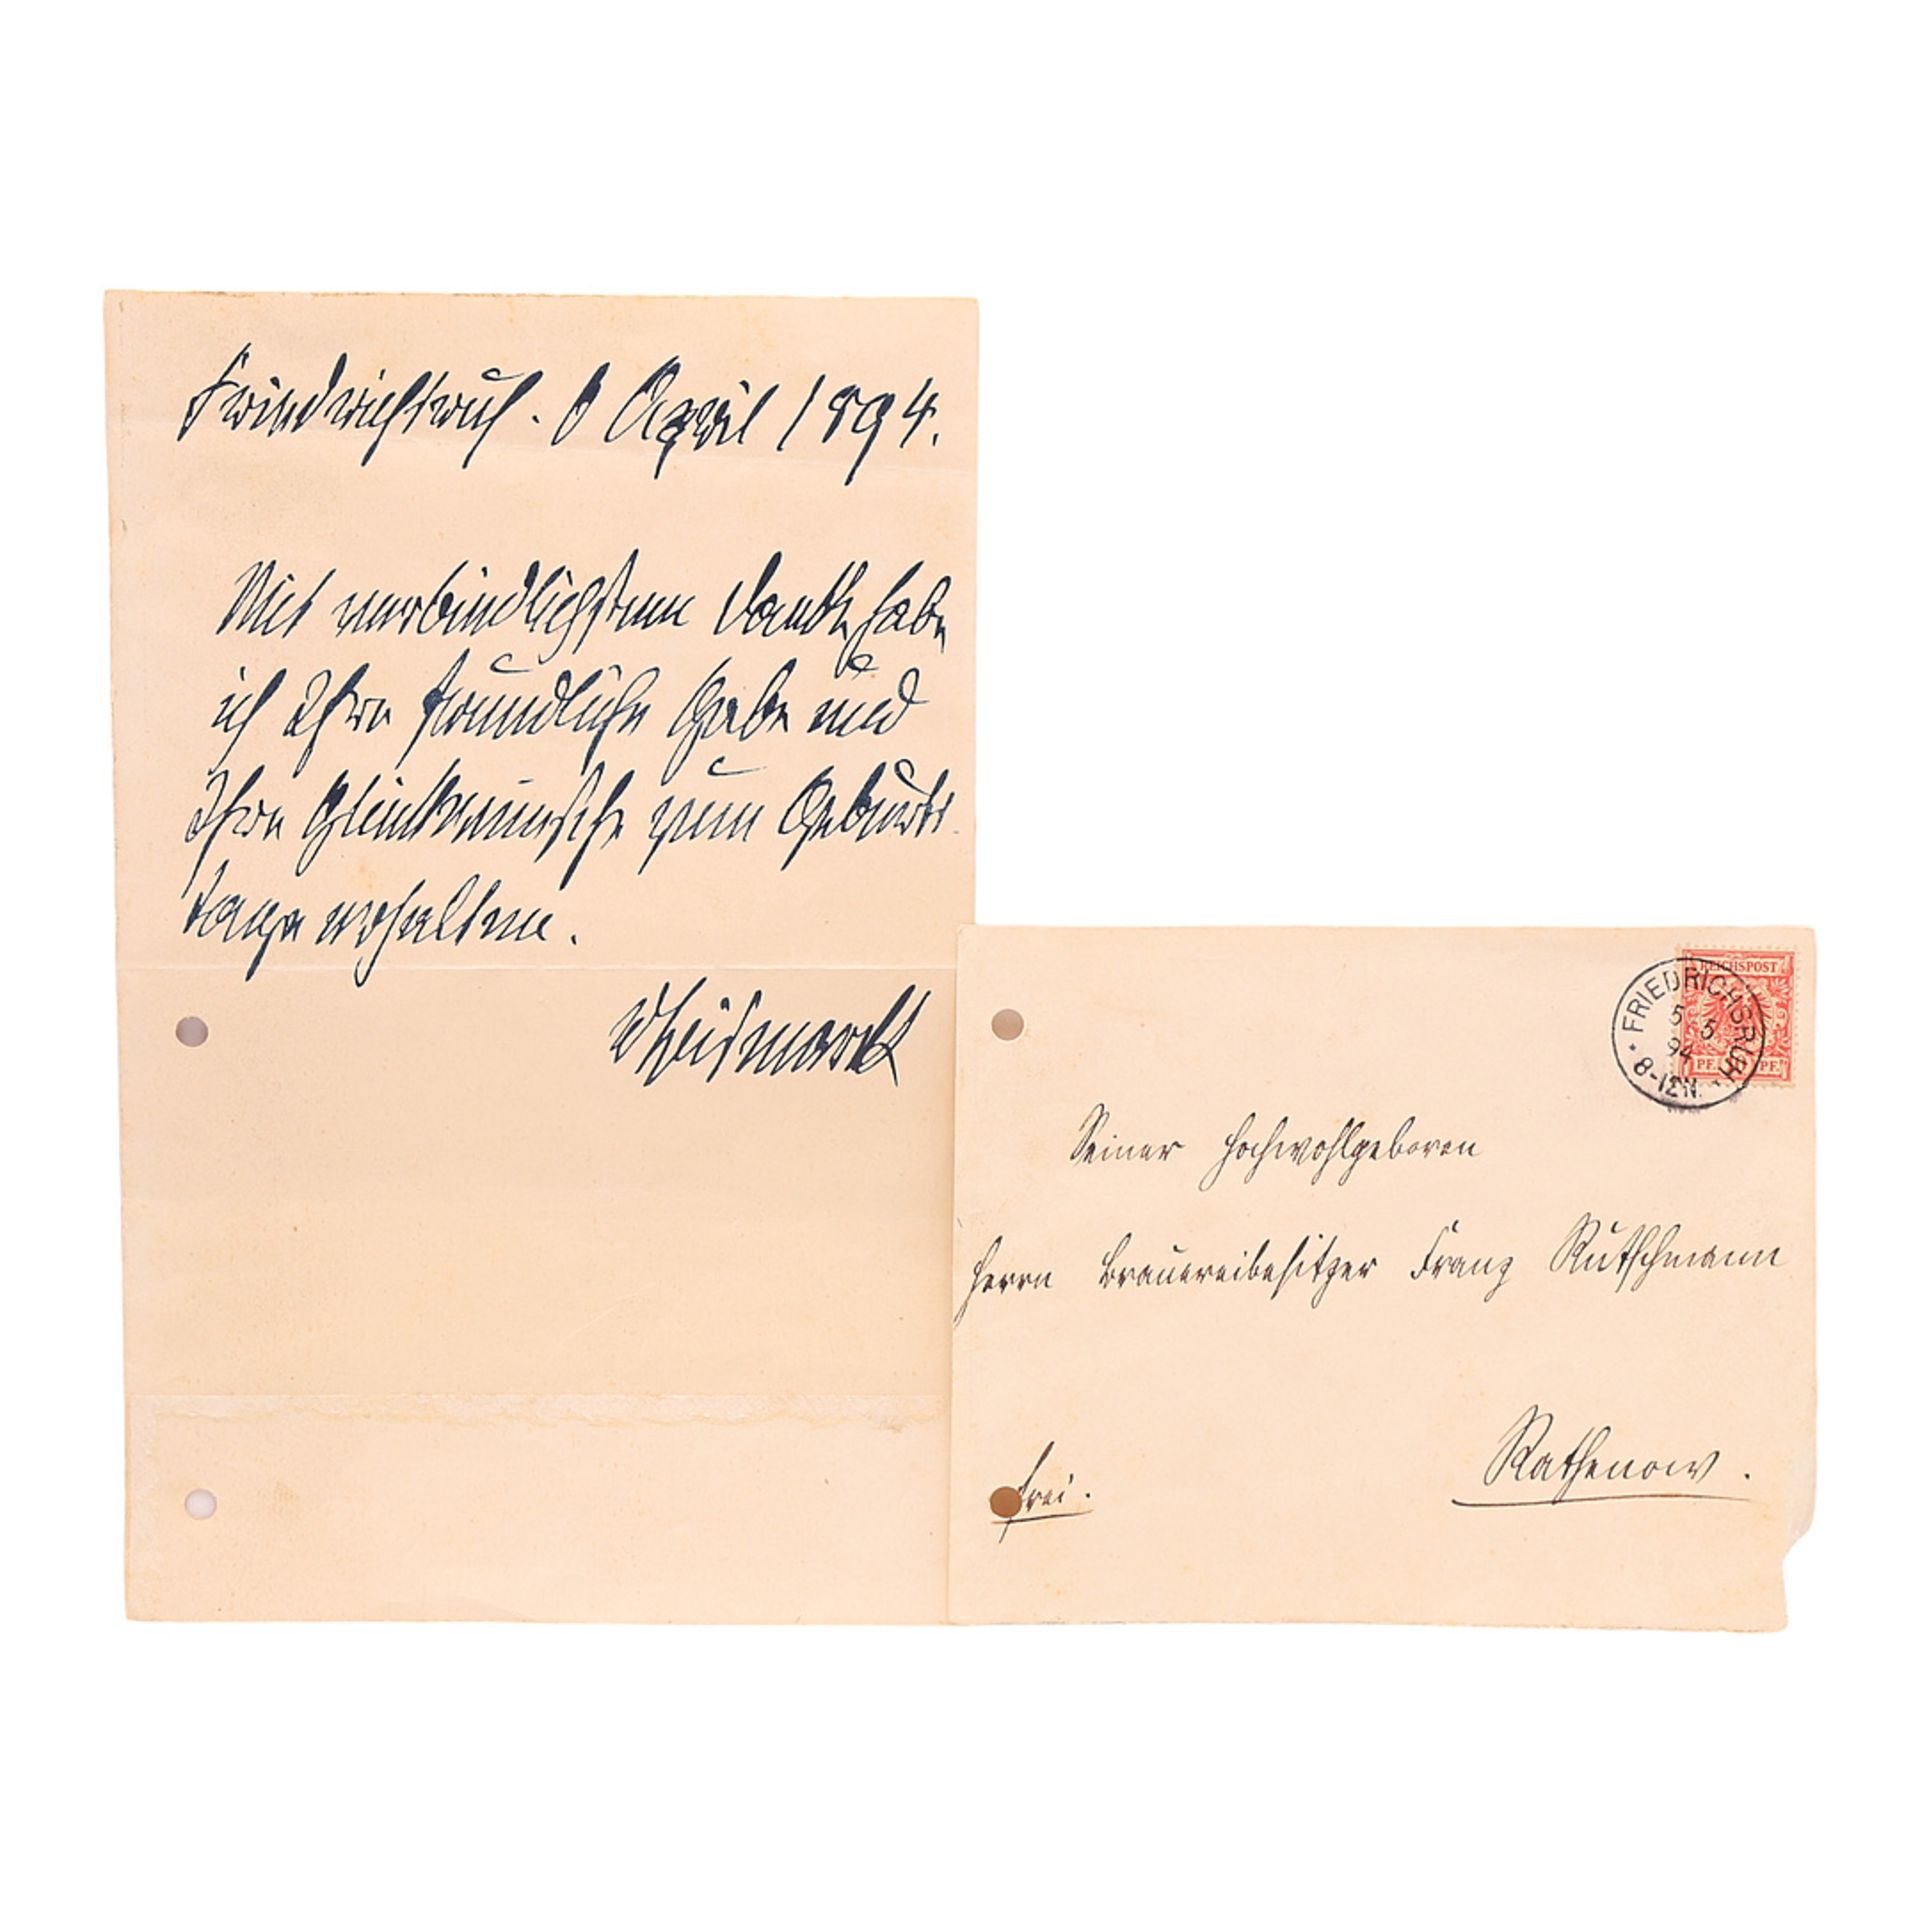 Friedrichsruh. 6 April 1894.
Mit verbindlichstem Dank habe
ich Ihre freundliche Gabe und
Ihre Glückwünsche zum Geburts-
tage erhalten.
v Bismarck
REICHSPOST
PF. PF.
* FRIEDRICHSRUH *
5 5
94
8-12N.
Seiner Hochwohlgeboren
Herrn Brauereibesitzer Franz Rutschmann
Rathenow.
frei.